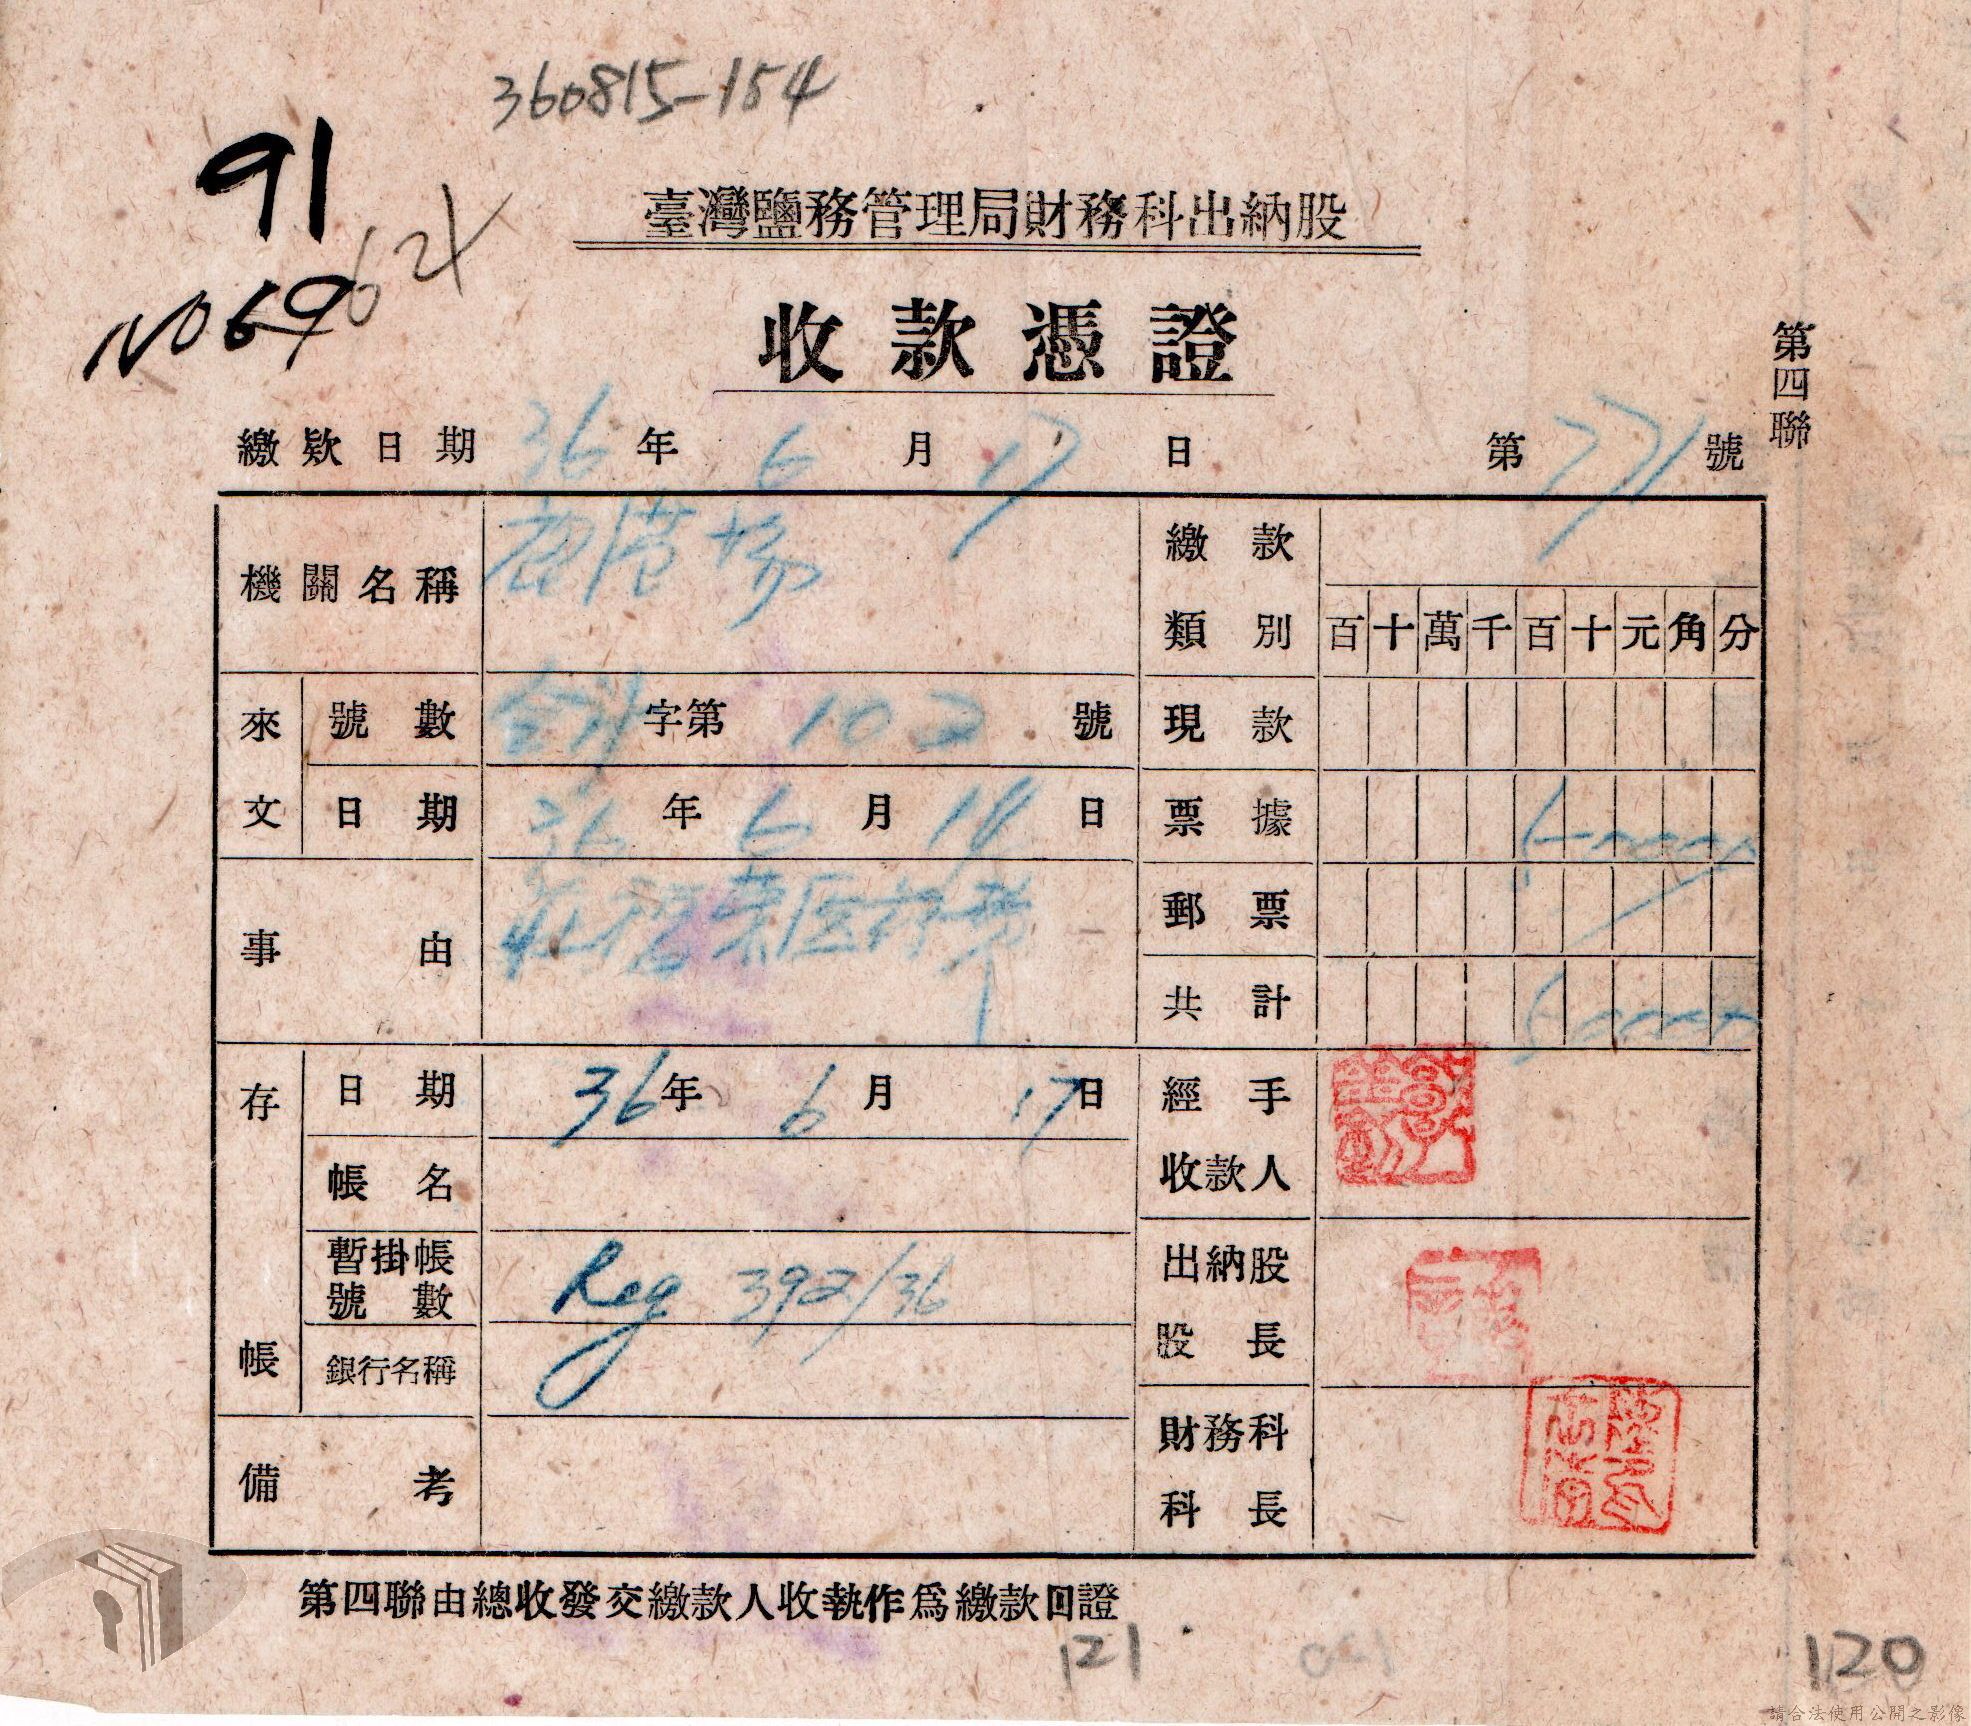 360815-154
91
624
No 69
臺灣鹽務管理局財務科出納股
收款憑證
第四聯
繳欵日期 36年6月17日 第771號
機關名稱 鹿港場
繳款類別 百十萬千百十元角分
來文 號數 會計字第102號
現款
日期 36年6月14日
票據
事由
郵票
共計
存帳 日期 36年6月17日
經手收款人
帳名
暫掛帳號數 Reg 392/36
出納股股長
銀行名稱
財務科科長
備考
第四聯由總收發交繳款人收執作爲繳款回證
121
120
請合法使用公開之影像